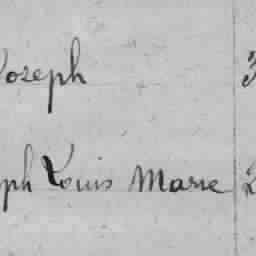 Joseph
ph Louis Marie